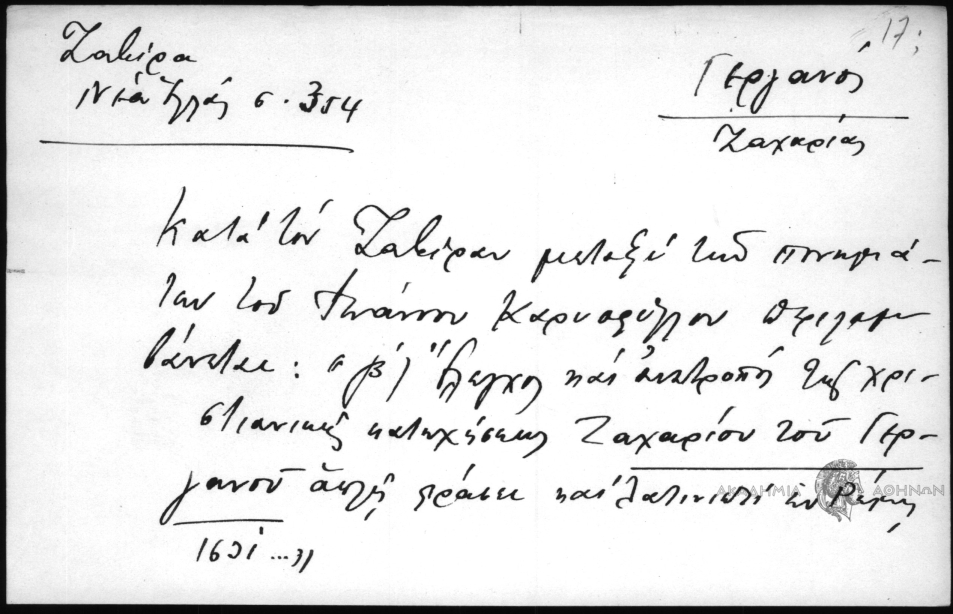 17
Ζαβίρα
Νέα Ἑλλάς σ. 354
Γεργανός
Ζαχαρίας
Κατά τόν Ζαβίραν μεταξύ τῶν πονημά-
των τοῦ Ἰωάννου Καρυοφύλλου περιλαμ
βάνεται: "β) Ἔλεγχος καί ἀνατροπή τῆς χρι-
στιανικῆς κατηχήσεως Ζαχαρίου τοῦ Γερ-
γανοῦ ἁπλῇ φράσει καί λατινιστί ἐν Ρώμῃ
ΑΚΑΔΗΜΙΑ ΑΘΗΝΩΝ